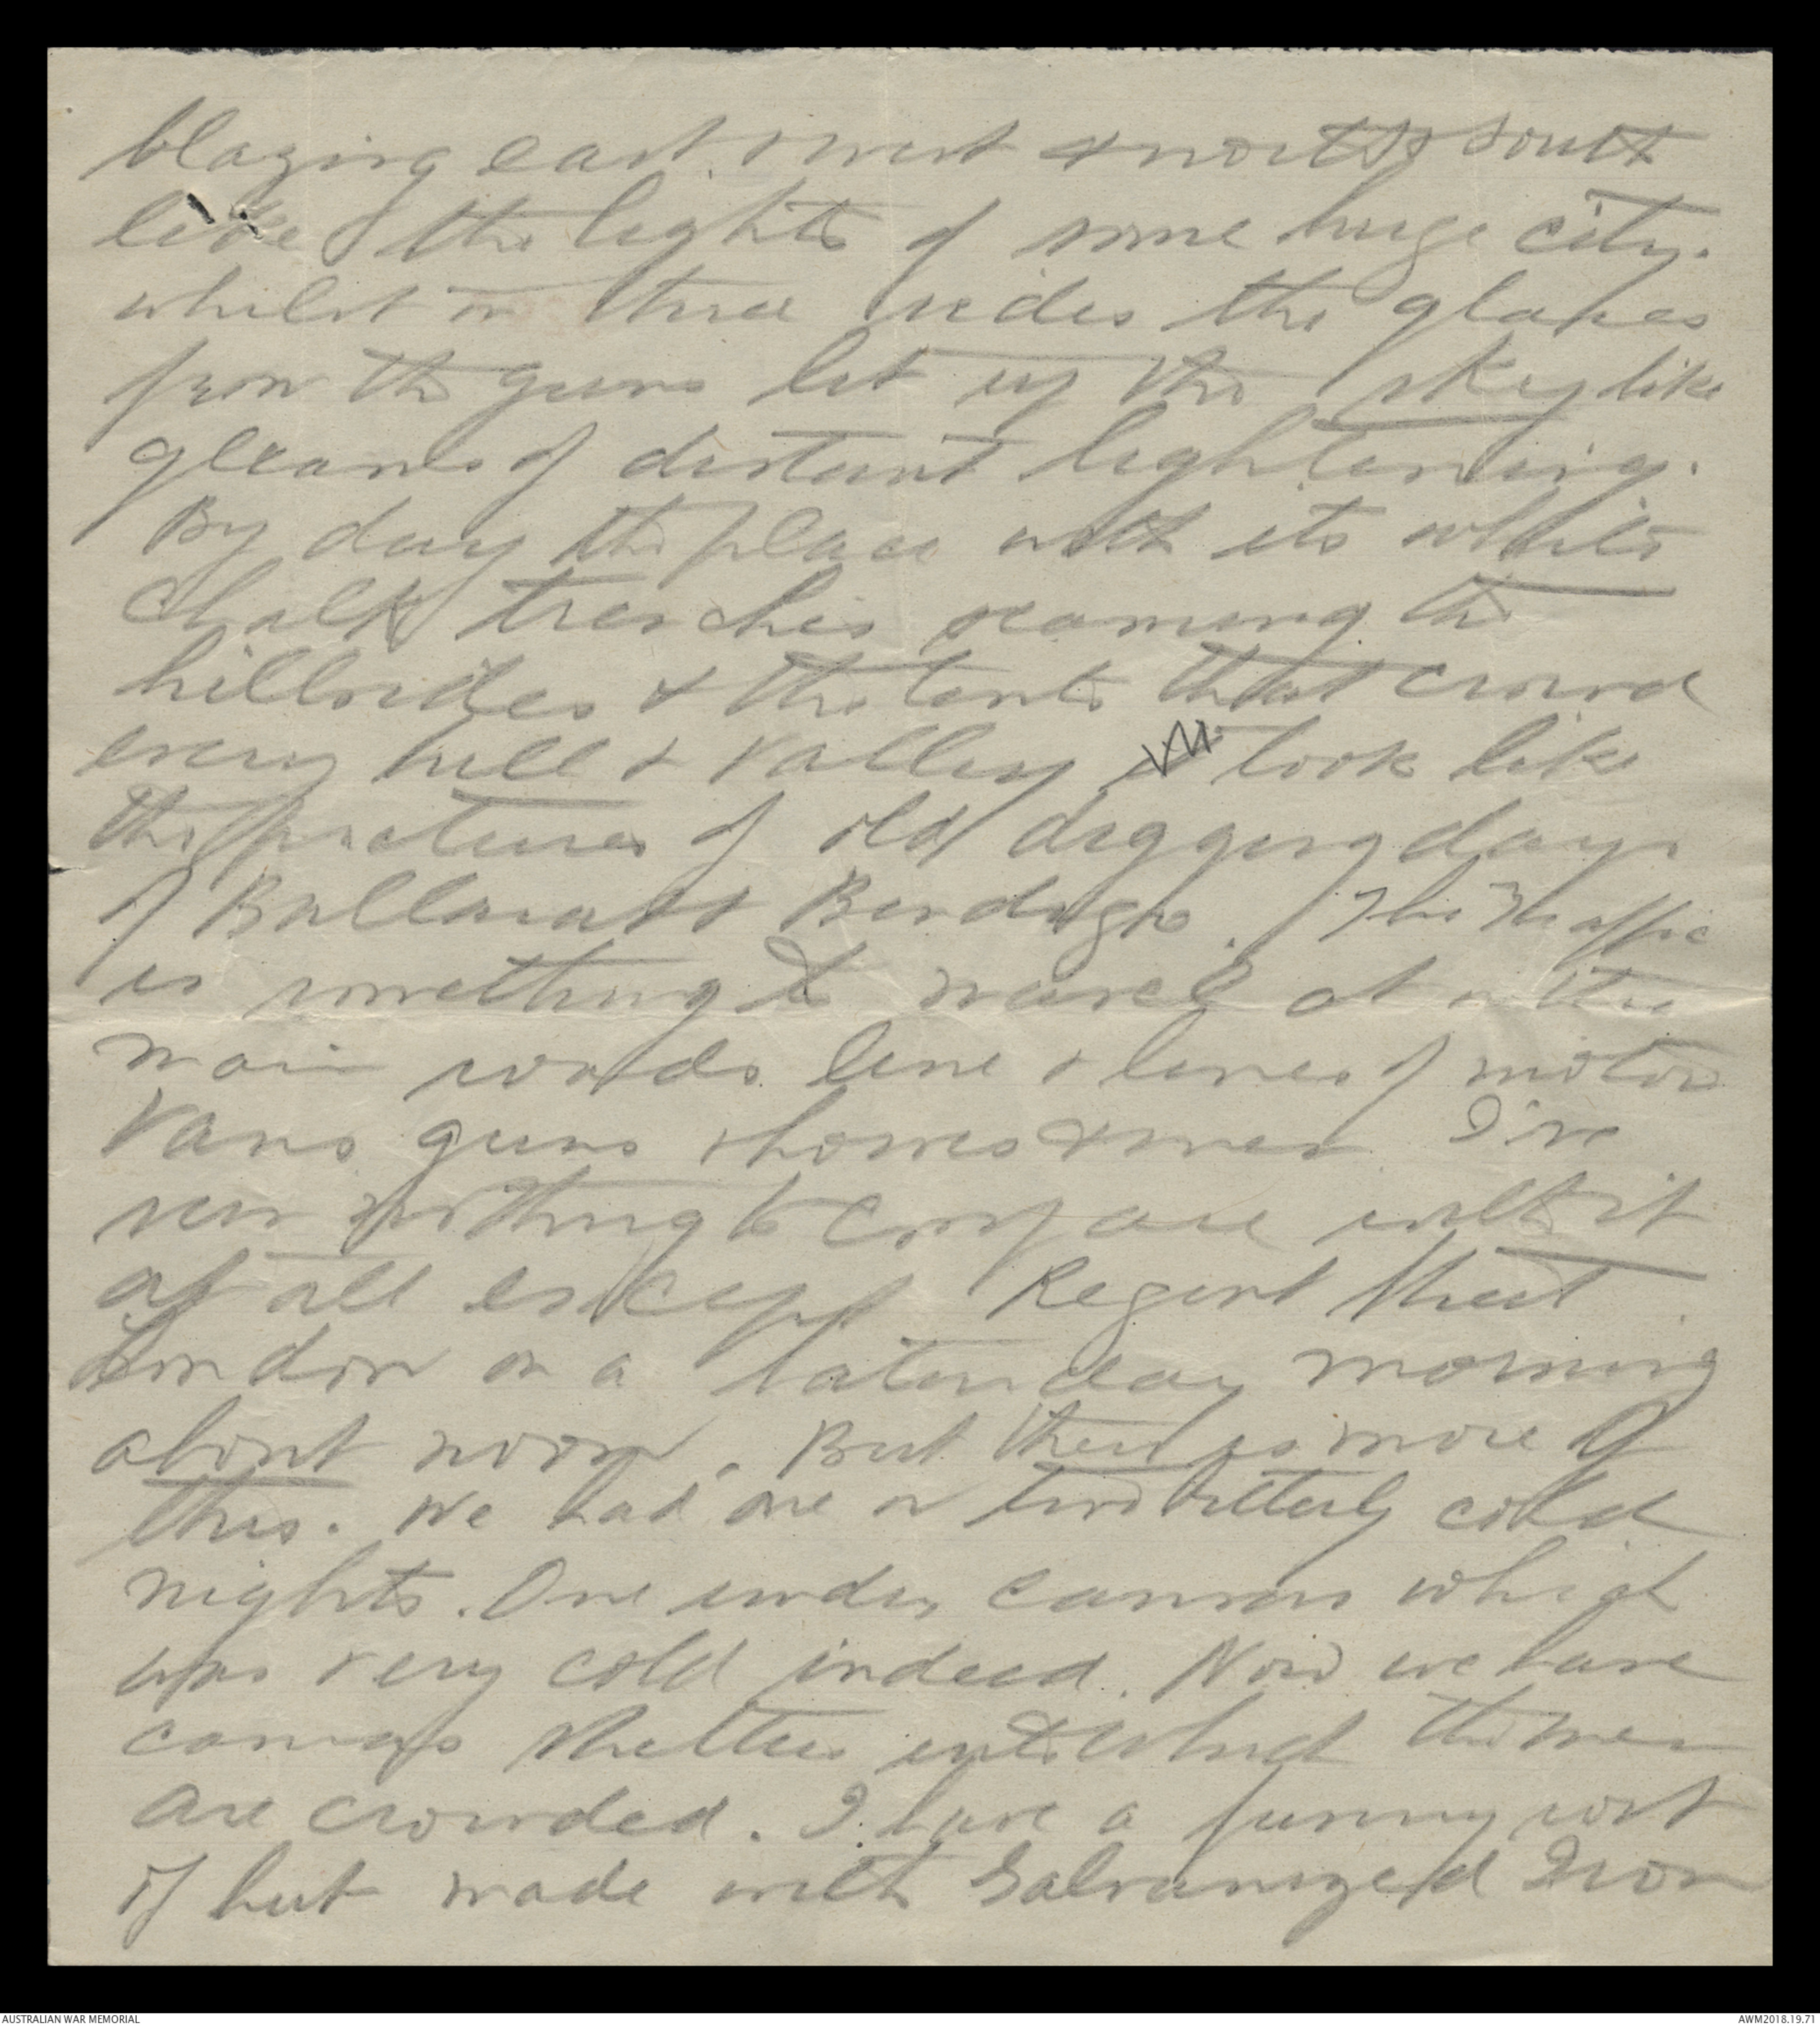 blazing east & west & north & south
like the lights of some huge city.
whilst on three sides the glares
from the guns lit up the sky like
gleams of distant lightening.
By day the place with its white
chalk trenches seaming the
hillsides & the tents that crowd
every hill & valley look like
the pictures of old digging days
of Ballarat & Bendigo. The traffic
is something to marvel at on the
main roads line & lines of motor
vans guns & horses & men. I've
seen nothing to compare with it
at all except Regent Street
London on a Saturday morning
about noon. But there is more of
this. We had one or two bitterly cold
nights. One under canvas which
was very cold indeed. Now we have
canvas shelters into which the men
are crowded. I have a funny sort
of hut made with Galvanized Iron
AUSTRALIAN WAR MEMORIAL
AWM2018.19.71